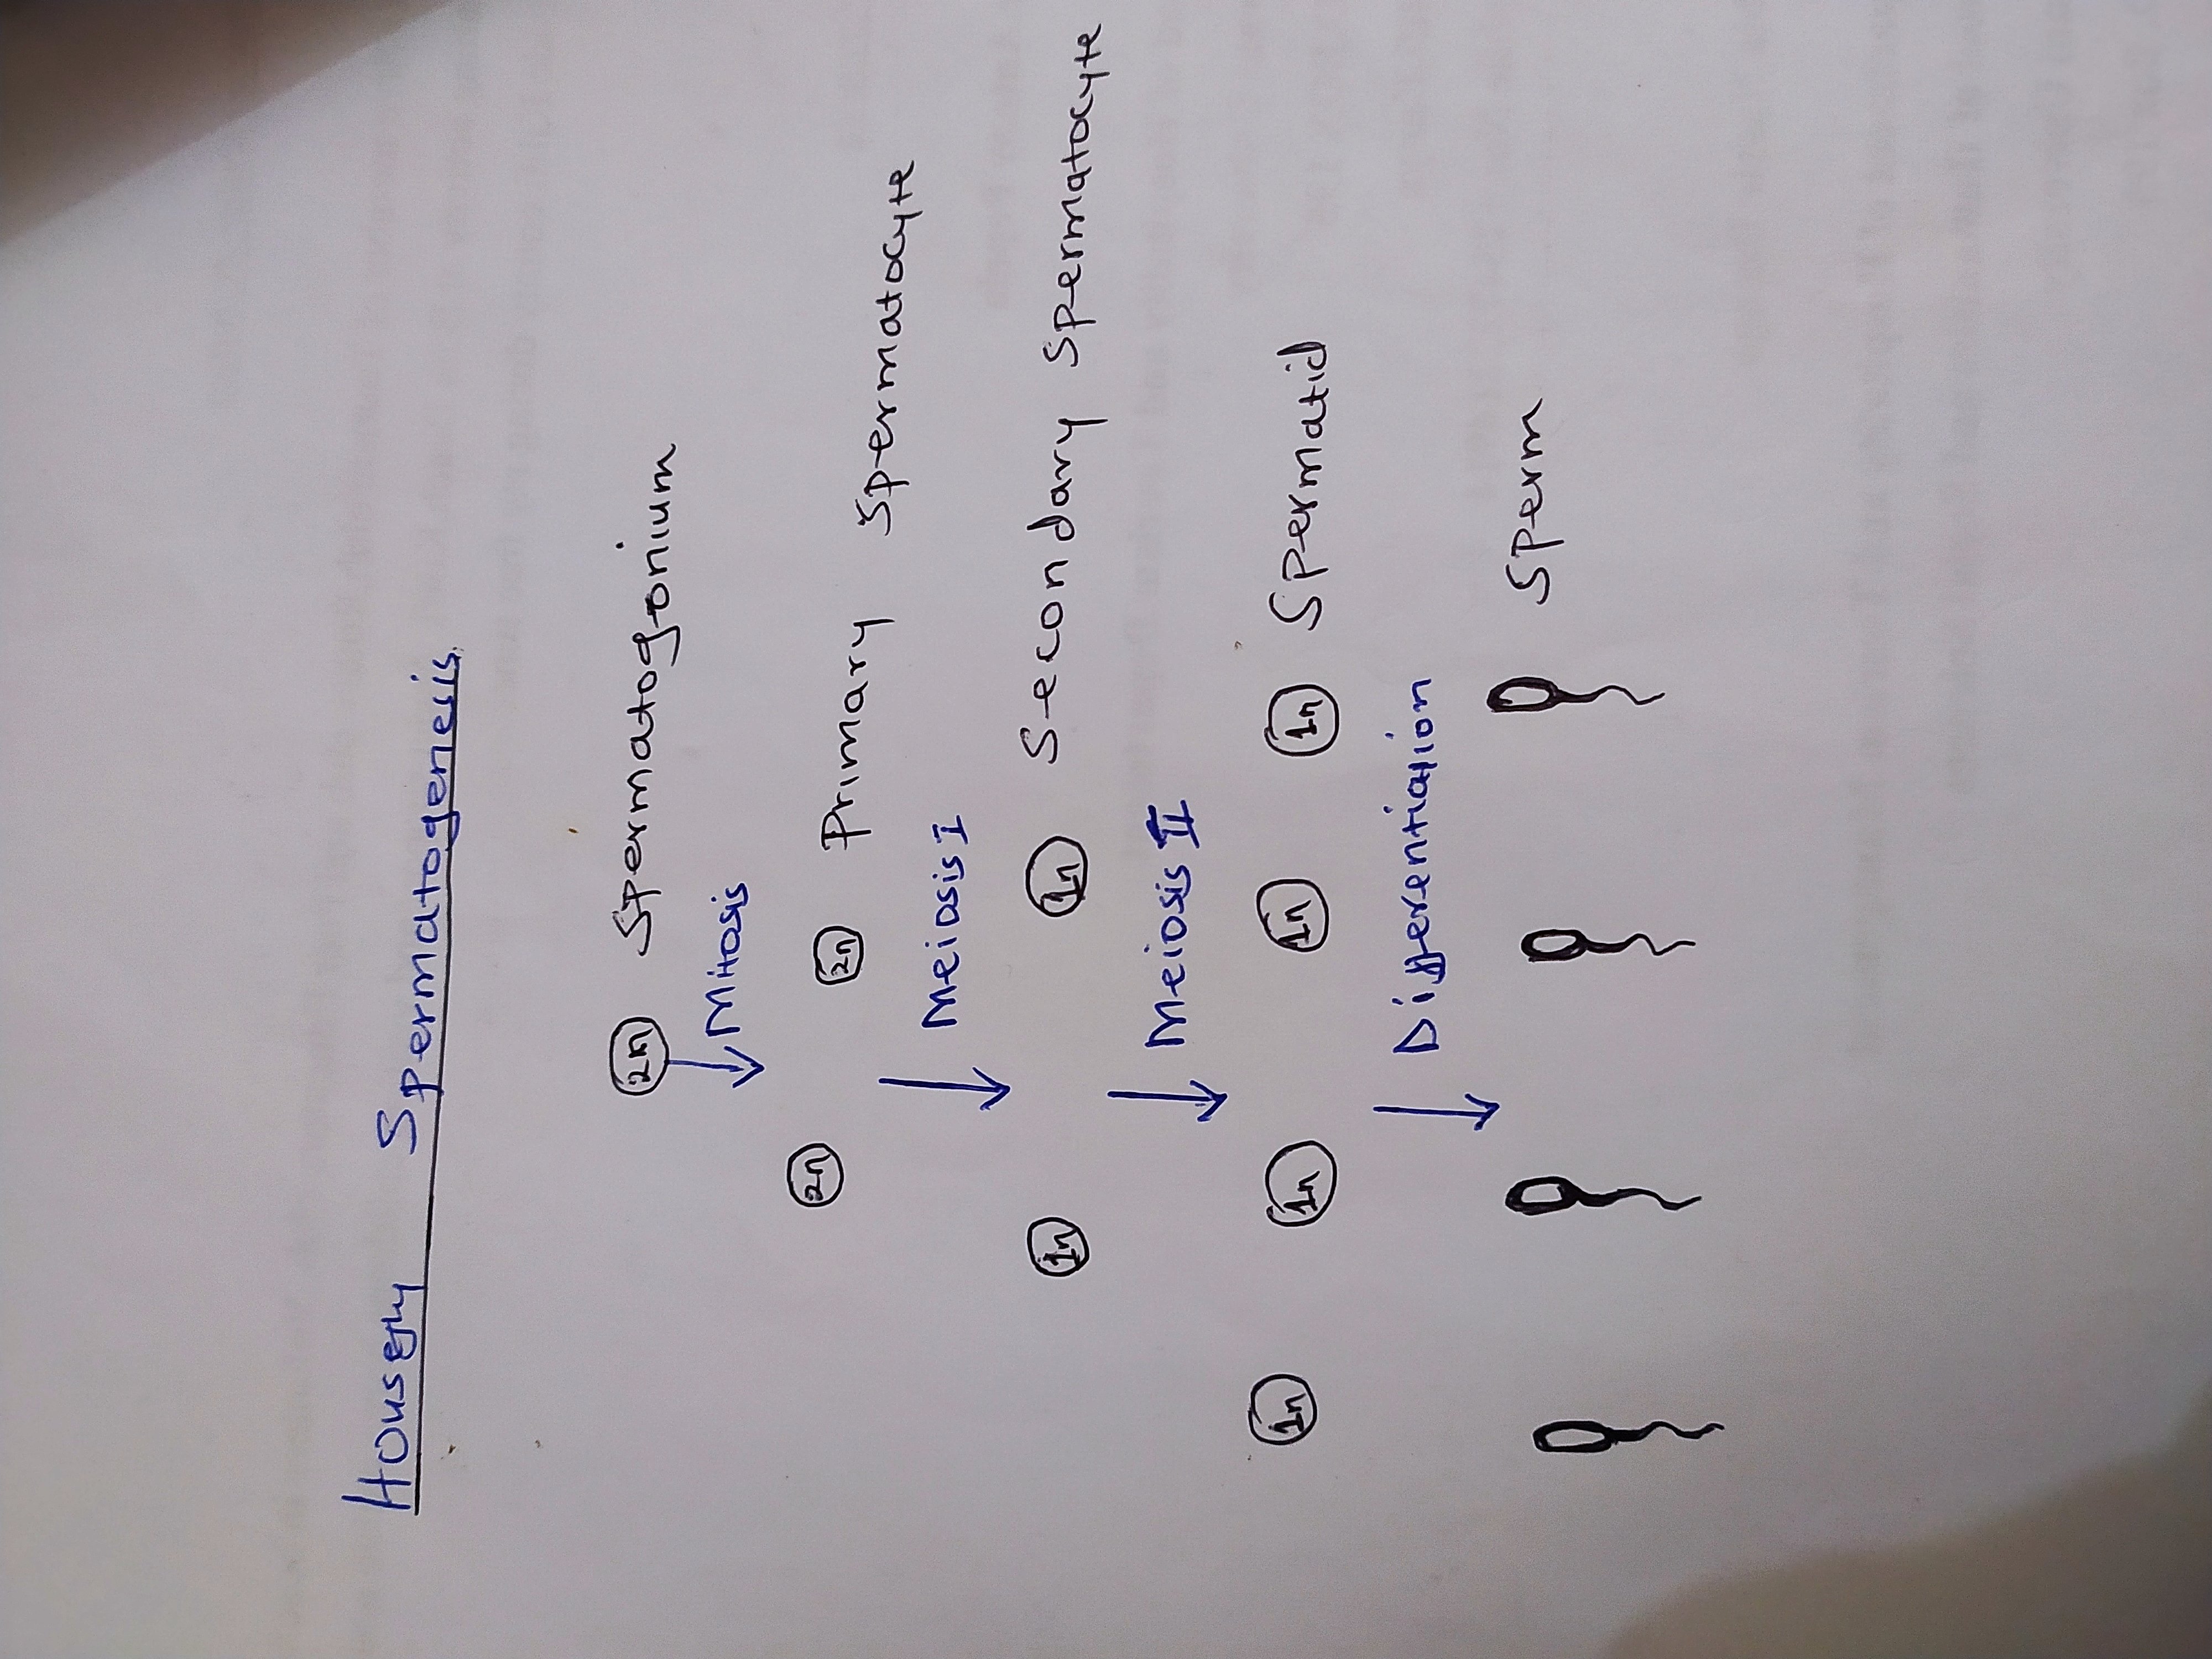 Housefly Spermatogenesis
2n Spermatogonium
Mitosis
2n 2n Primary Spermatocyte
Meiosis I
1n 1n Secondary Spermatocyte
Meiosis II
1n 1n 1n 1n Spermatid
Differentiation
Sperm